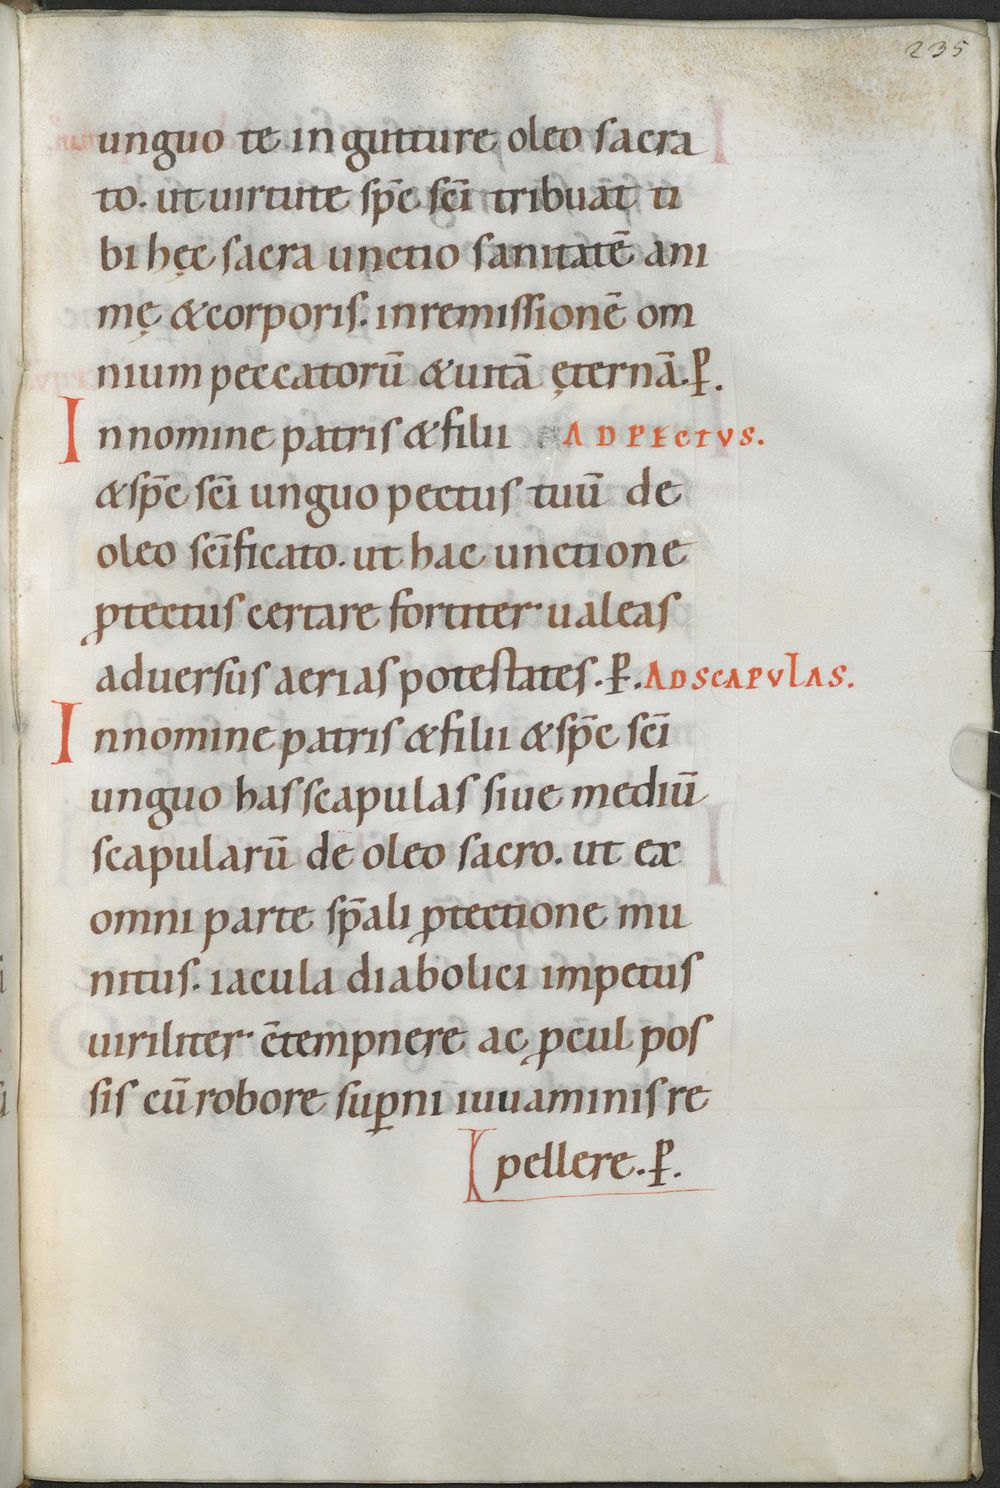 235
unguo te in gutture oleo sacra
to. ut uirtute sp̄c sc̄i tribuat ti
bi hęc sacra unctio sanitatē ani
mę & corporis. in remissionē om
nium peccatorū & uitā ęternā. P̄.
In nomine patris & filii AD PECTVS.
& sp̄c sc̄i unguo pectus tuū de
oleo sc̄ificato. ut hac unctione
ꝓtectus certare fortiter ualeas
aduersus aerias potestates. P̄. AD SCAPVLAS.
In nomine patris & filii & sp̄c sc̄i
unguo has scapulas siue mediū
scapularū de oleo sacro. ut ex
omni parte sp̄ali ꝓtectione mu
nitus. iacula diabolici impetus
uiriliter c̄tempnere ac ꝓcul pos
sis cū robore suꝑni iuuaminis re
pellere. P̄.